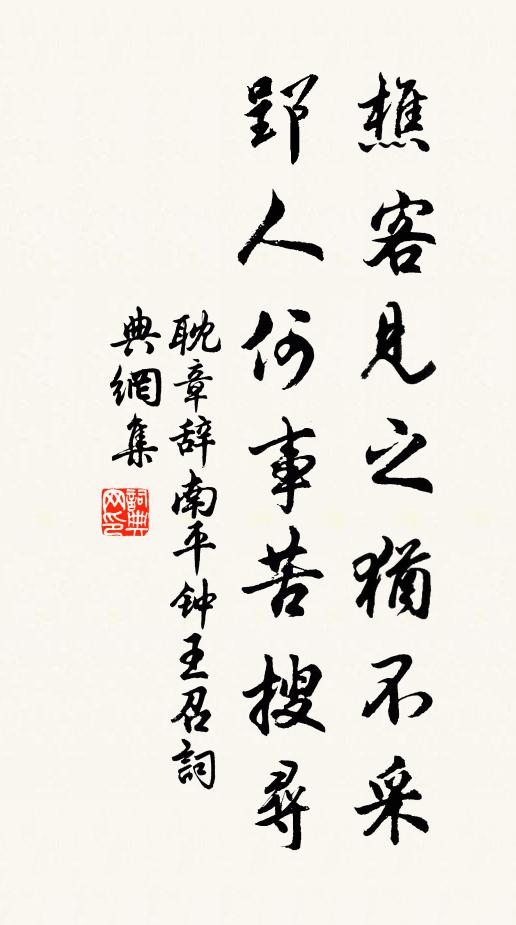 樵客見之猶不采
郢人何事苦搜尋
耽章辞南平钟王召詞
典網集
詞典
网印